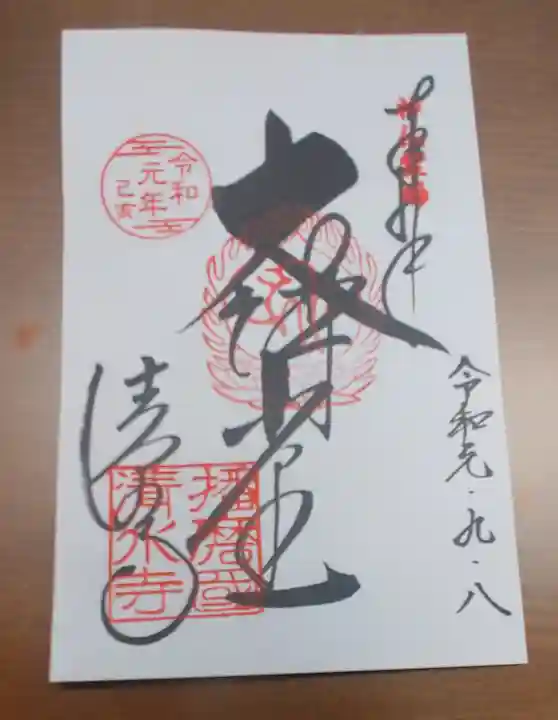 奉拝
令和元・九・八
大講堂
令和
元年
己亥
清水寺
播磨國
清水寺